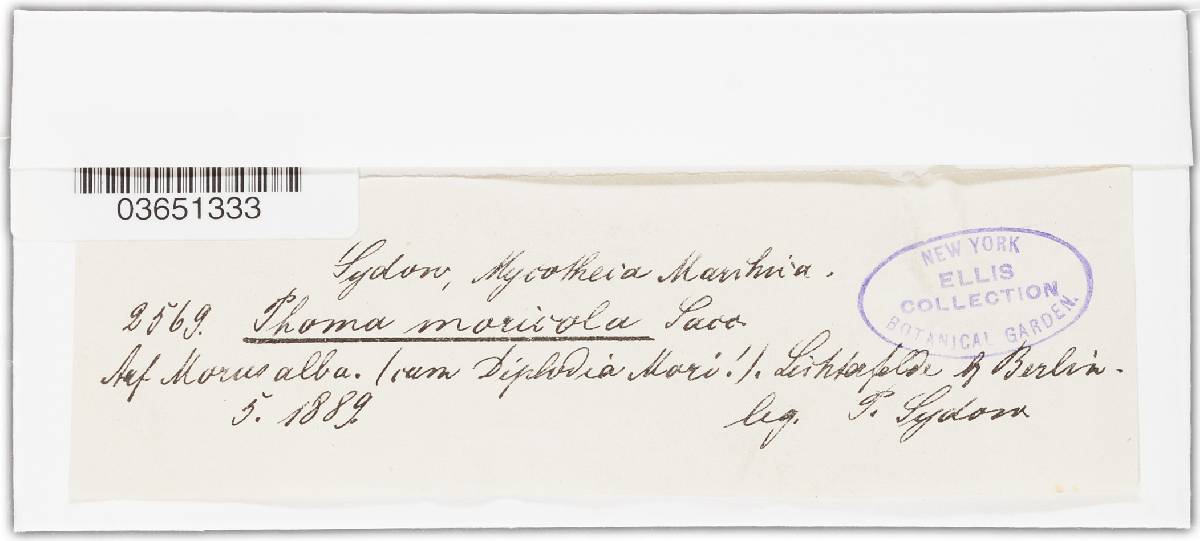 03651333
Sydow, Mycotheca Marchica.
NEW YORK
ELLIS
COLLECTION
BOTANICAL GARDEN.
2569. Phoma moricola Sacc.
Auf Morus alba. (cum Diplodia Mori!). Lichterfelde b Berlin.
5. 1889.
leg. P. Sydow